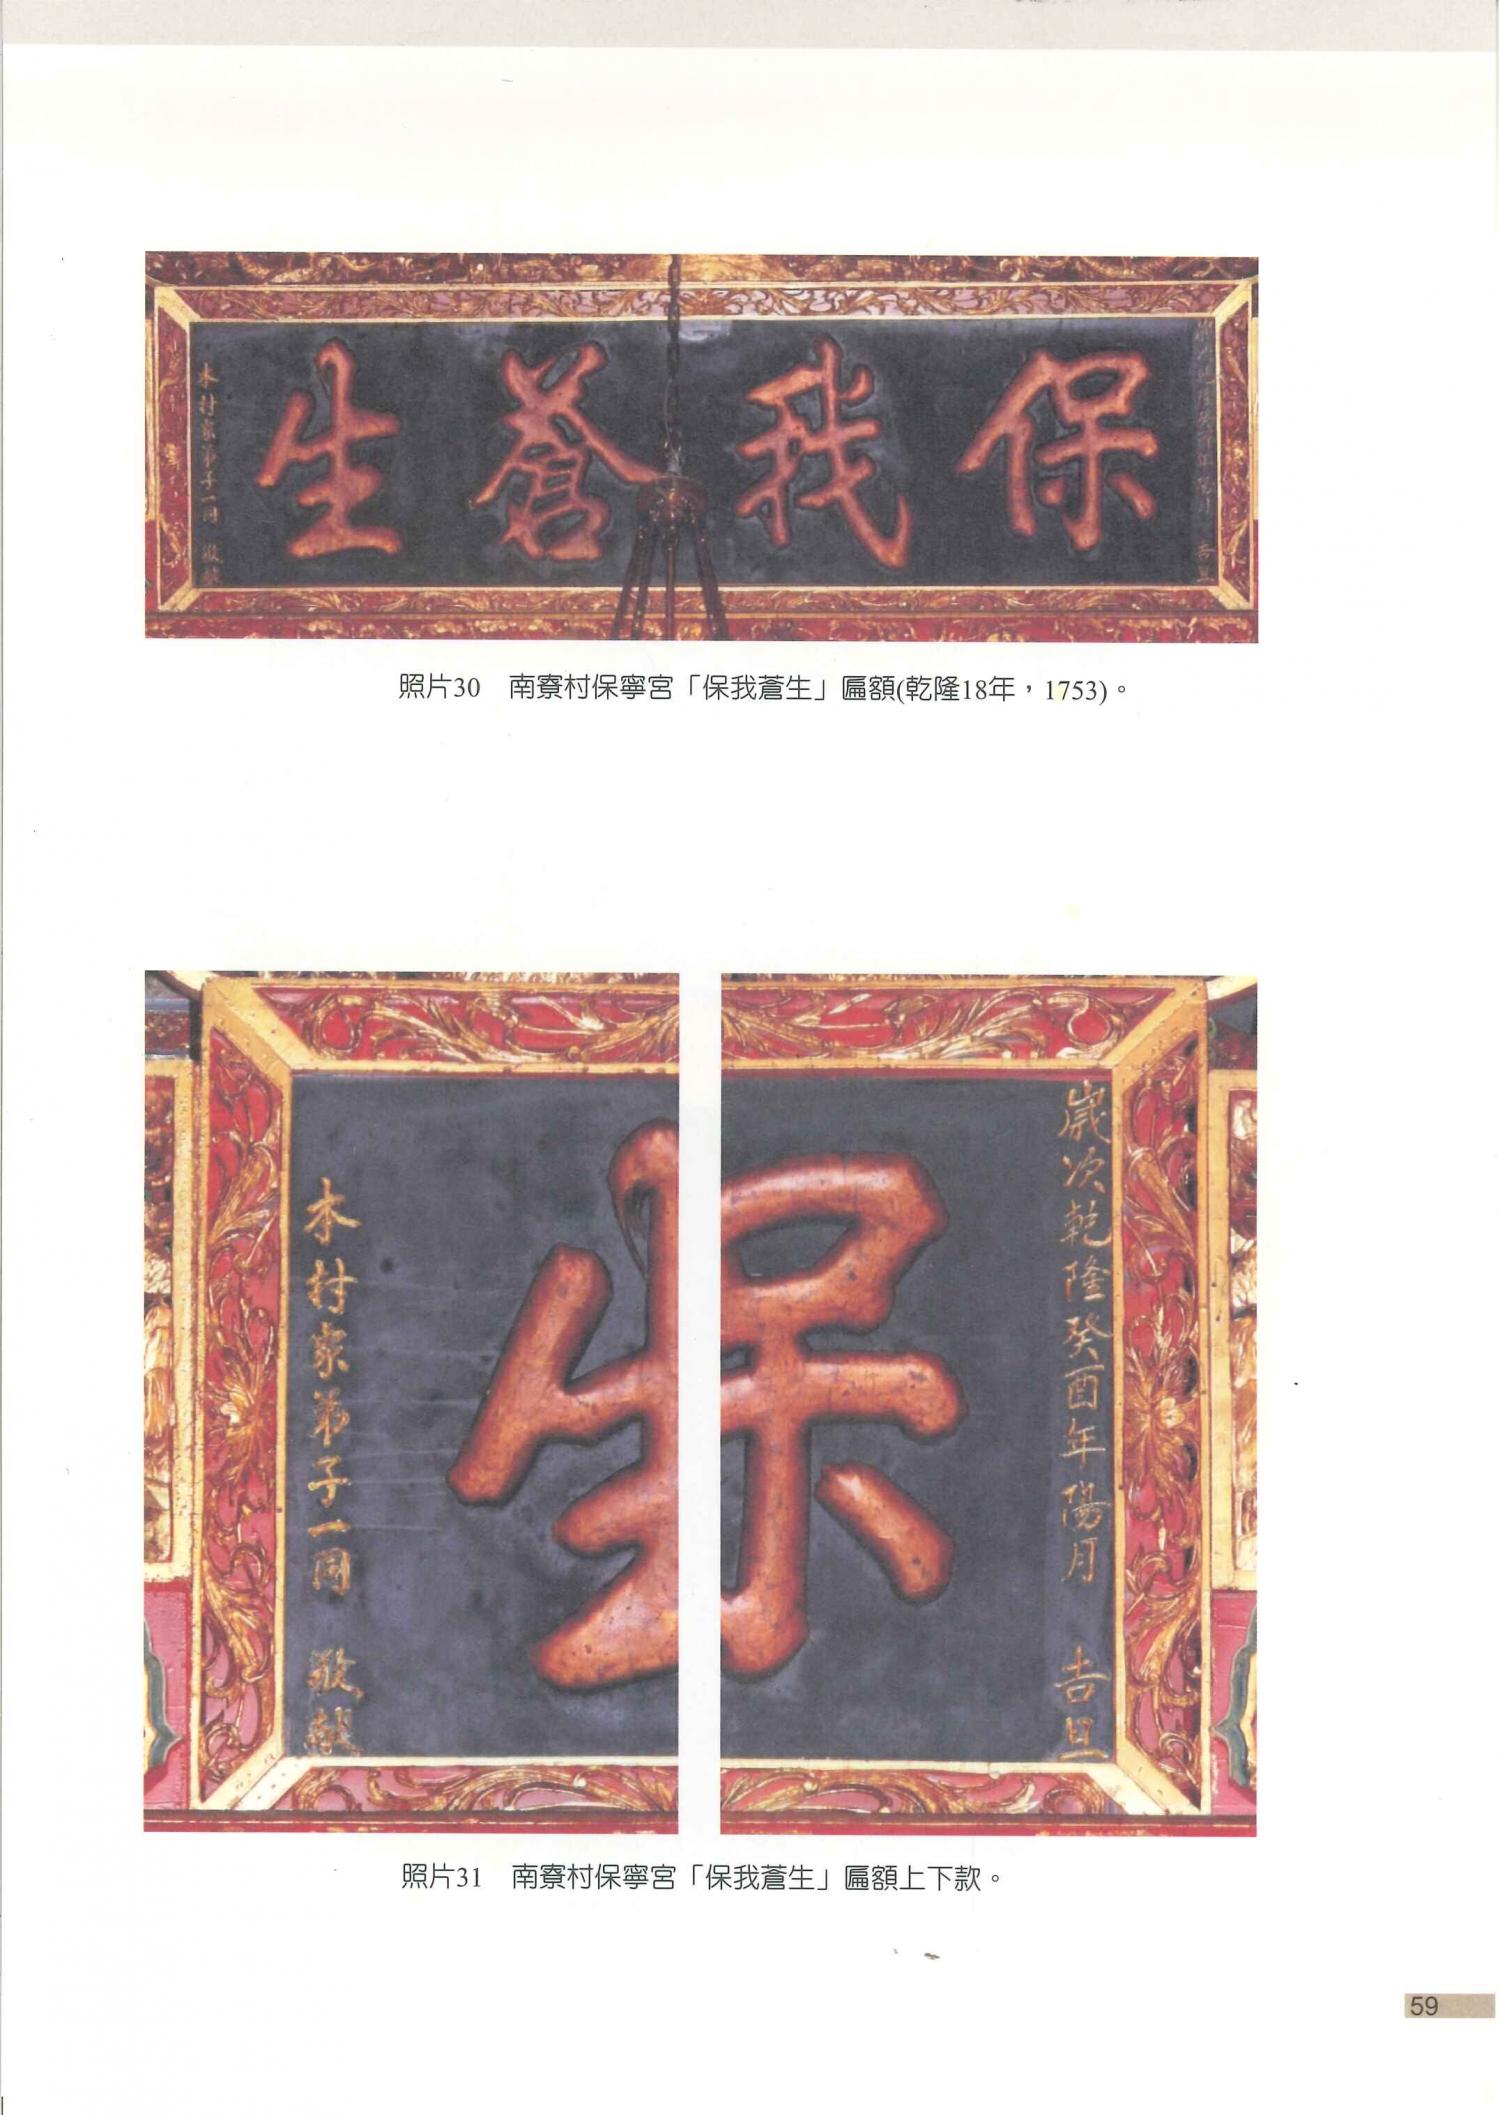 保我蒼生
本村眾弟子一同 敬獻
照片30 南寮村保寧宮「保我蒼生」匾額(乾隆18年，1753)。
歲次乾隆癸酉年陽月 吉旦
保
生
本村眾弟子一同 敬獻
照片31 南寮村保寧宮「保我蒼生」匾額上下款。
59